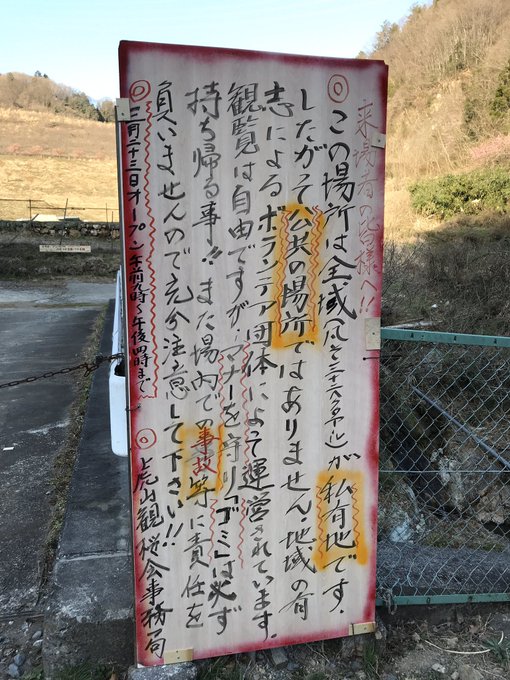 来場者の皆様へ!!
◎この場所は全域が私有地です.
したがって公共の場所ではありません.地域の有
志によるボランティア団体によって運営されています.
観覧は自由ですが、マナーを守り「ゴミ」は必ず
持ち帰る事!!また場内での事故等に責任を
負いませんので充分注意して下さい!!
◎三月二十三日オープン 午前9時〜午後四時まで
◎上虎山観桜会事務局